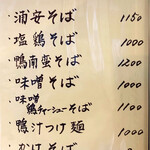 ・浦安そば 1150
・塩鶏そば 1000
・鴨南蛮そば 1200
・味噌そば 1000
・味噌鶏チャーシューそば 1100
・鴨汁つけ麺 1000
・かけそば